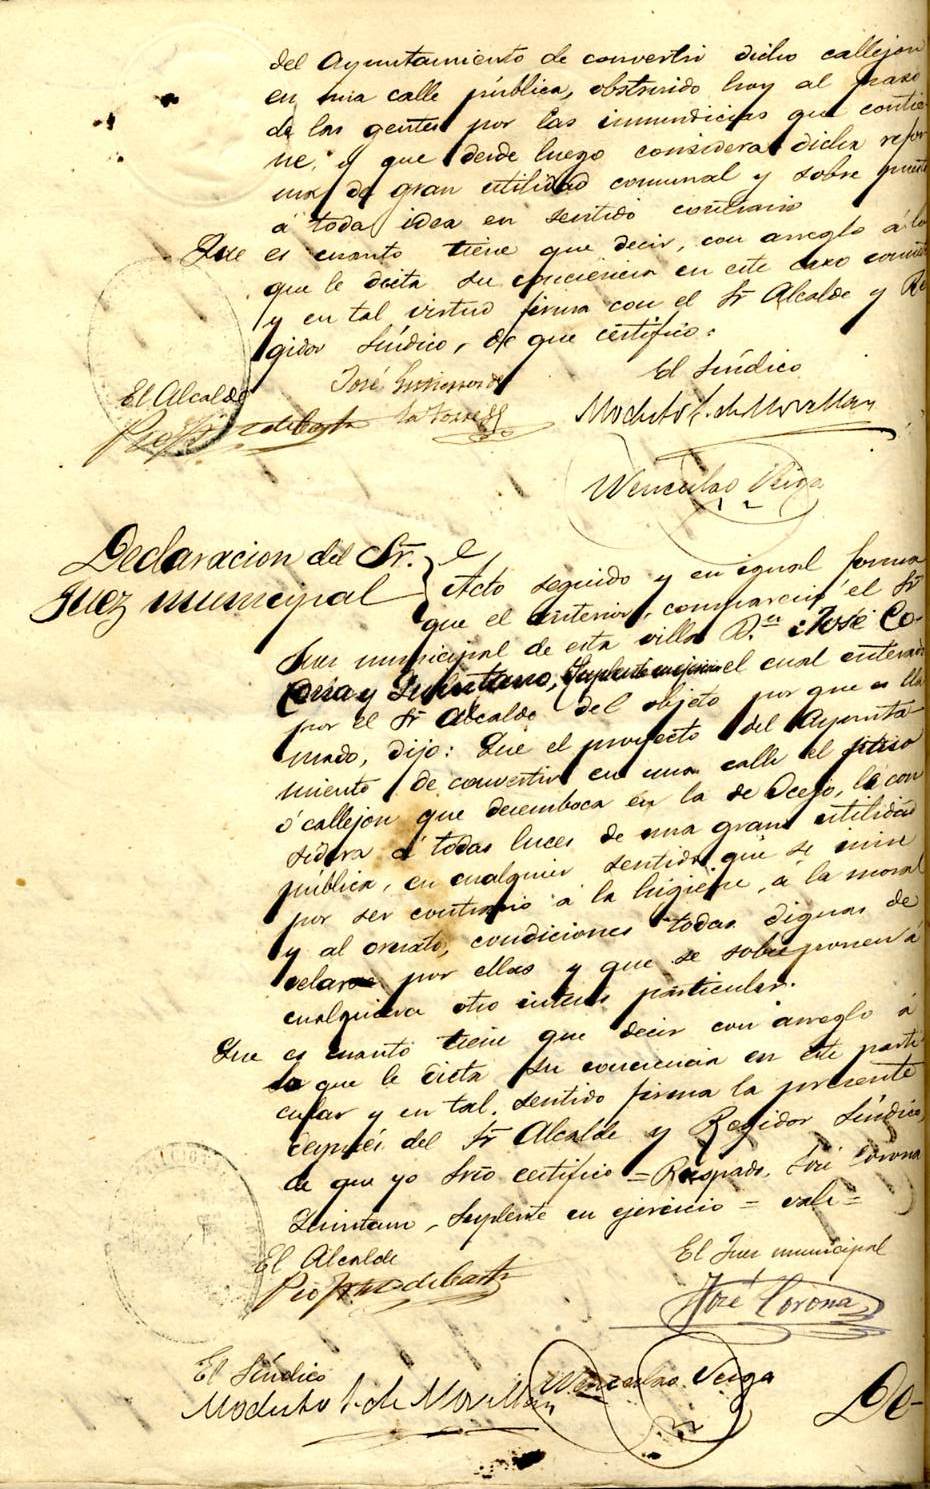 del Ayuntamiento de convertir dicho callejon
en una calle pública, obstruido hoy al paso
de las gentes por las inmundicias que contie-
ne, y que desde luego considera dicha refor-
ma de gran utilidad comunal y sobre
á toda idea en sentido contrario
Que es cuanto tiene que decir, con arreglo á lo
que le dicta su conciencia en este caso
y en tal virtud firma con el Sr Alcalde y Re
gidor Síndico, de que certifico:
El Alcalde
José Gutierrez de
la Torre
El Síndico
Modesto S. de Movellan
Wenceslao Veiga
Declaracion del Sr.
Juez municipal
Acto seguido y en igual forma
que el anterior, compareció el Sr
Juez municipal de esta villa D.n José Co-
rona y Quintana, Suplente en ejercicio el cual enterado
por el Sr Alcalde del objeto por que es lla
mado, dijo: Que el proyecto del Ayunta-
miento de convertir en una calle el
ó callejon que desemboca en la de Ocejo, lo con
sidera á todas luces de una gran utilidad
pública, en cualquier sentido que se mire
por ser contrario á la higiene, á la moral
y al ornato, condiciones todas dignas de
velarse por ellas y que se sobreponen á
cualquiera otro interes particular.
Que es cuanto tiene que decir con arreglo á
lo que le dicta su conciencia en este parti
cular y en tal sentido firma la presente
después del Sr Alcalde y Regidor Síndico,
de que yo Srio certifico = Raspado. José Corona
Quintana, Suplente en ejercicio = vale =
El Alcalde
El Juez municipal
José Corona
El Síndico
Modesto S. de Movellan
Wenceslao Veiga
De-